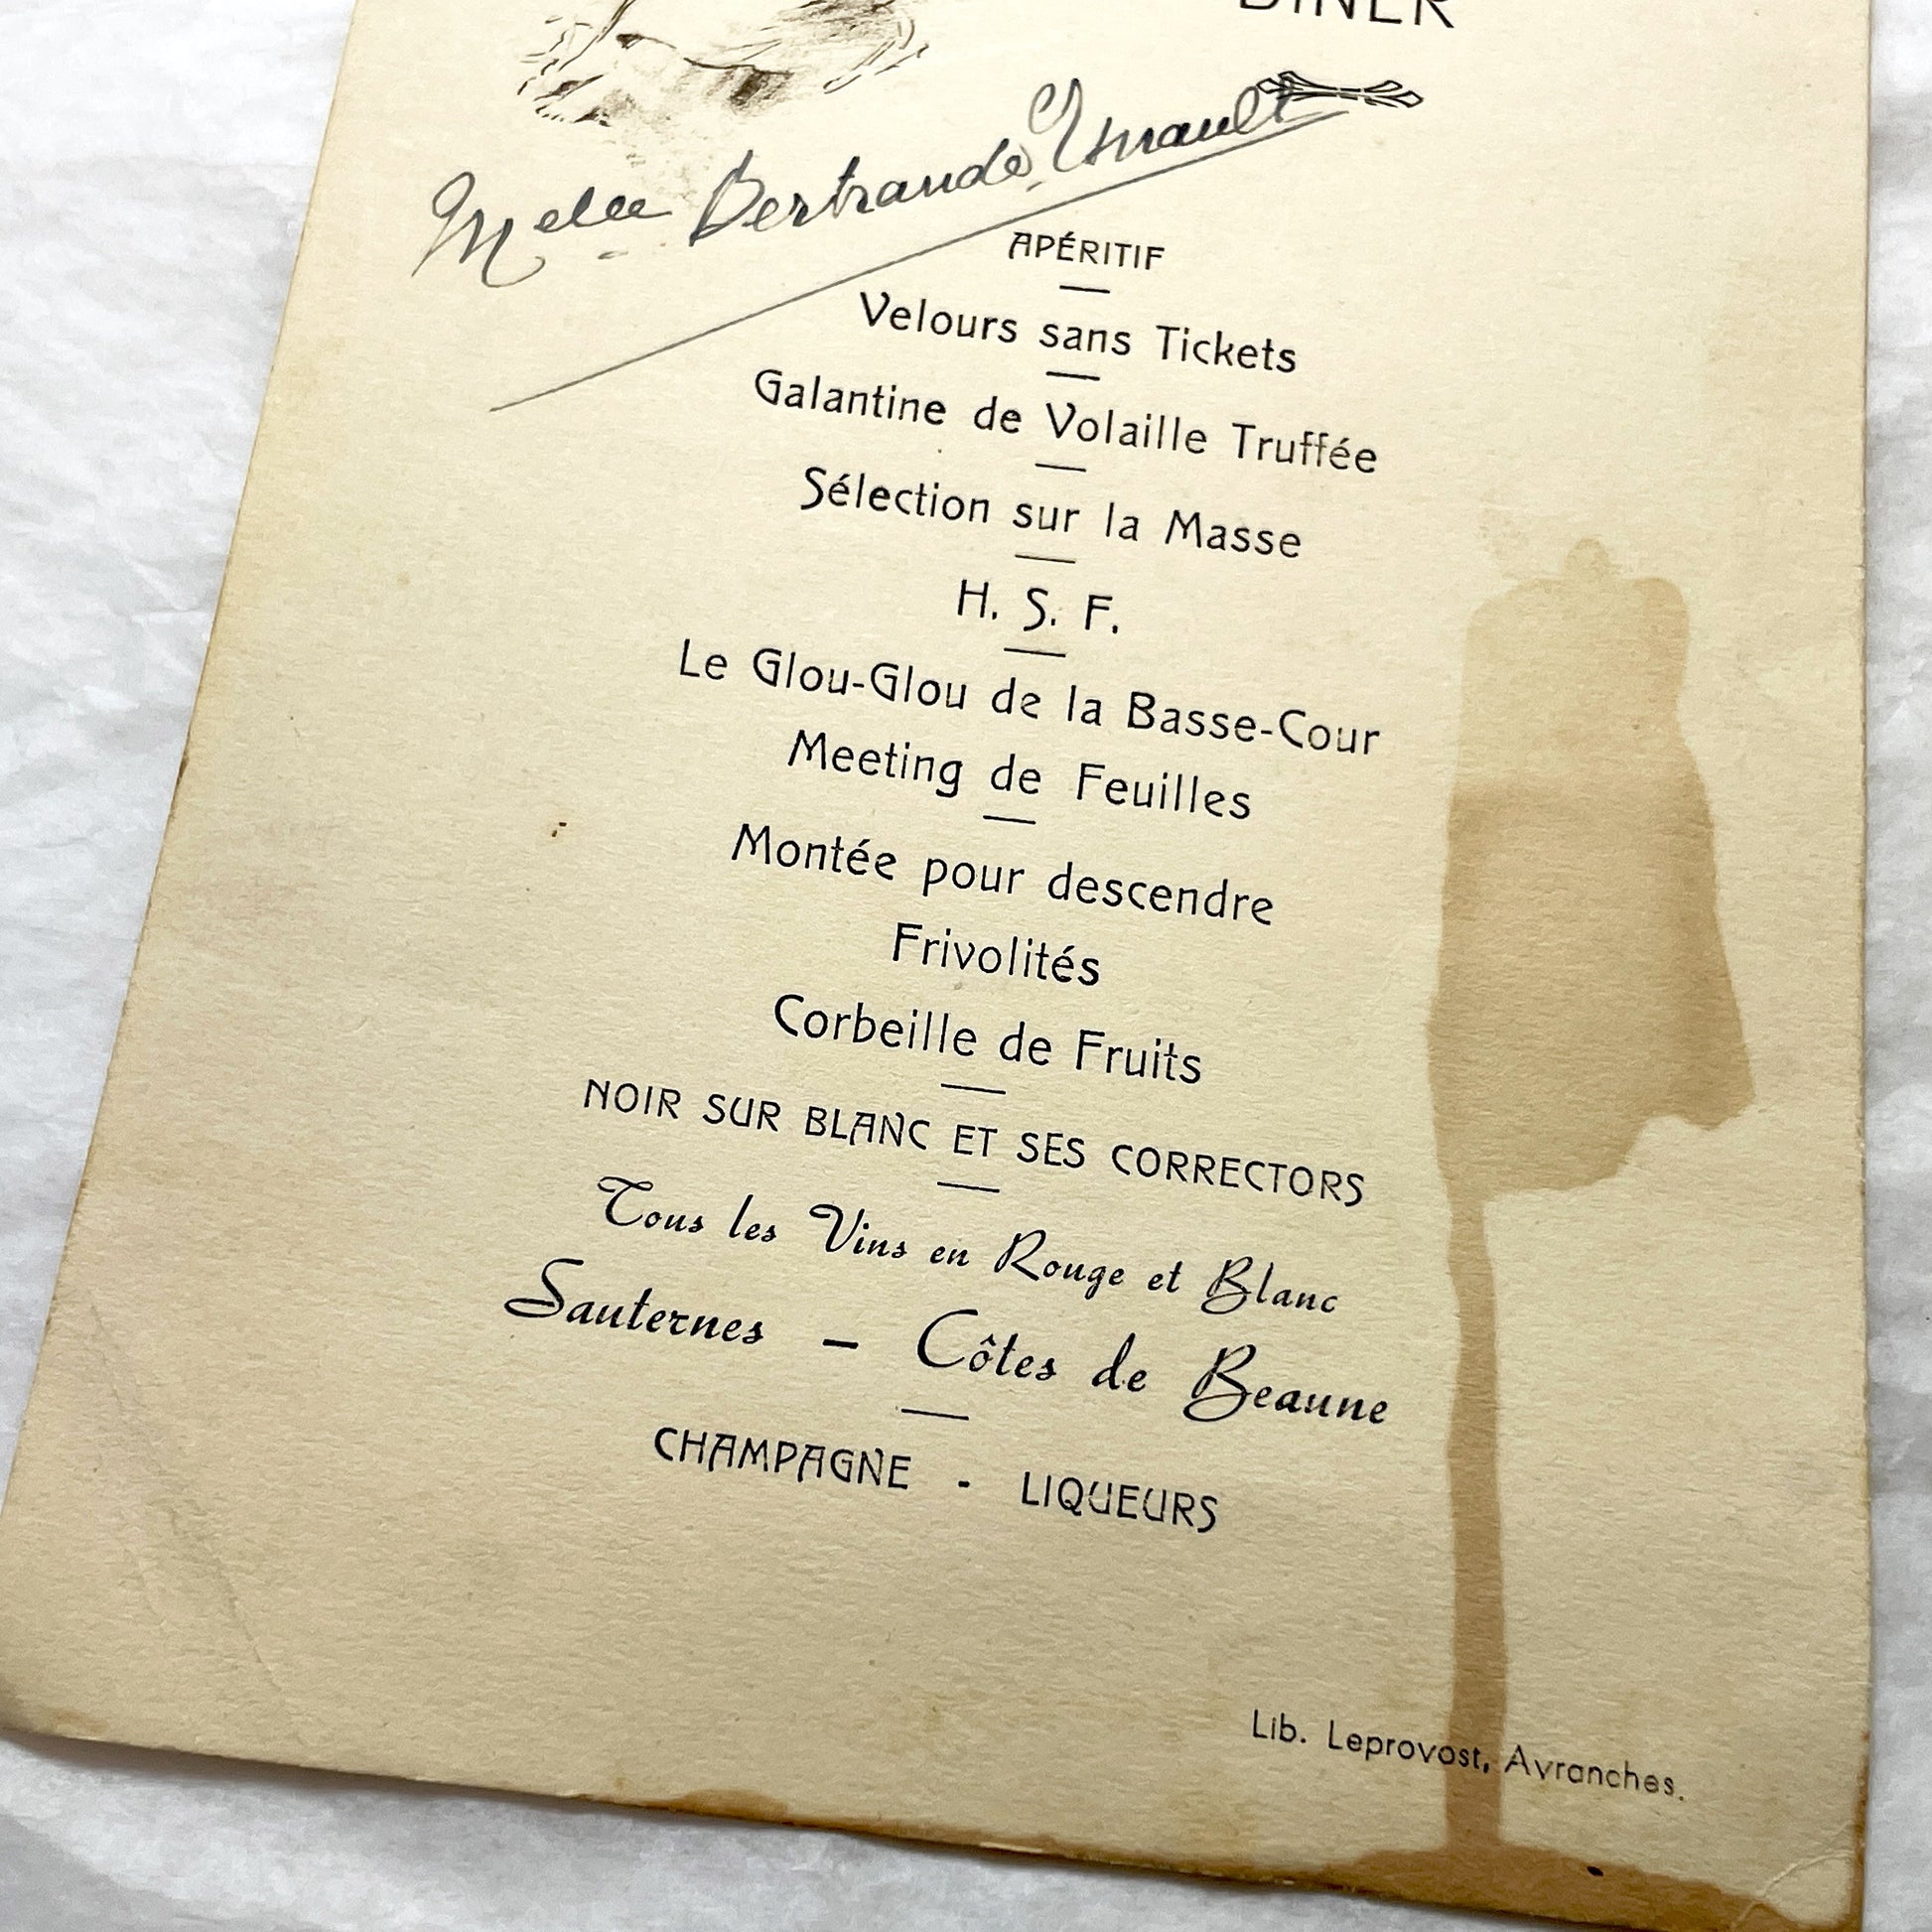 DINER
Melle Bertrande
APÉRITIF
Velours sans Tickets
Galantine de Volaille Truffée
Sélection sur la Masse
H. S. F.
Le Glou-Glou de la Basse-Cour
Meeting de Feuilles
Montée pour descendre
Frivolités
Corbeille de Fruits
NOIR SUR BLANC ET SES CORRECTORS
Tous les Vins en Rouge et Blanc
Sauternes – Côtes de Beaune
CHAMPAGNE - LIQUEURS
Lib. Leprovost, Avranches.